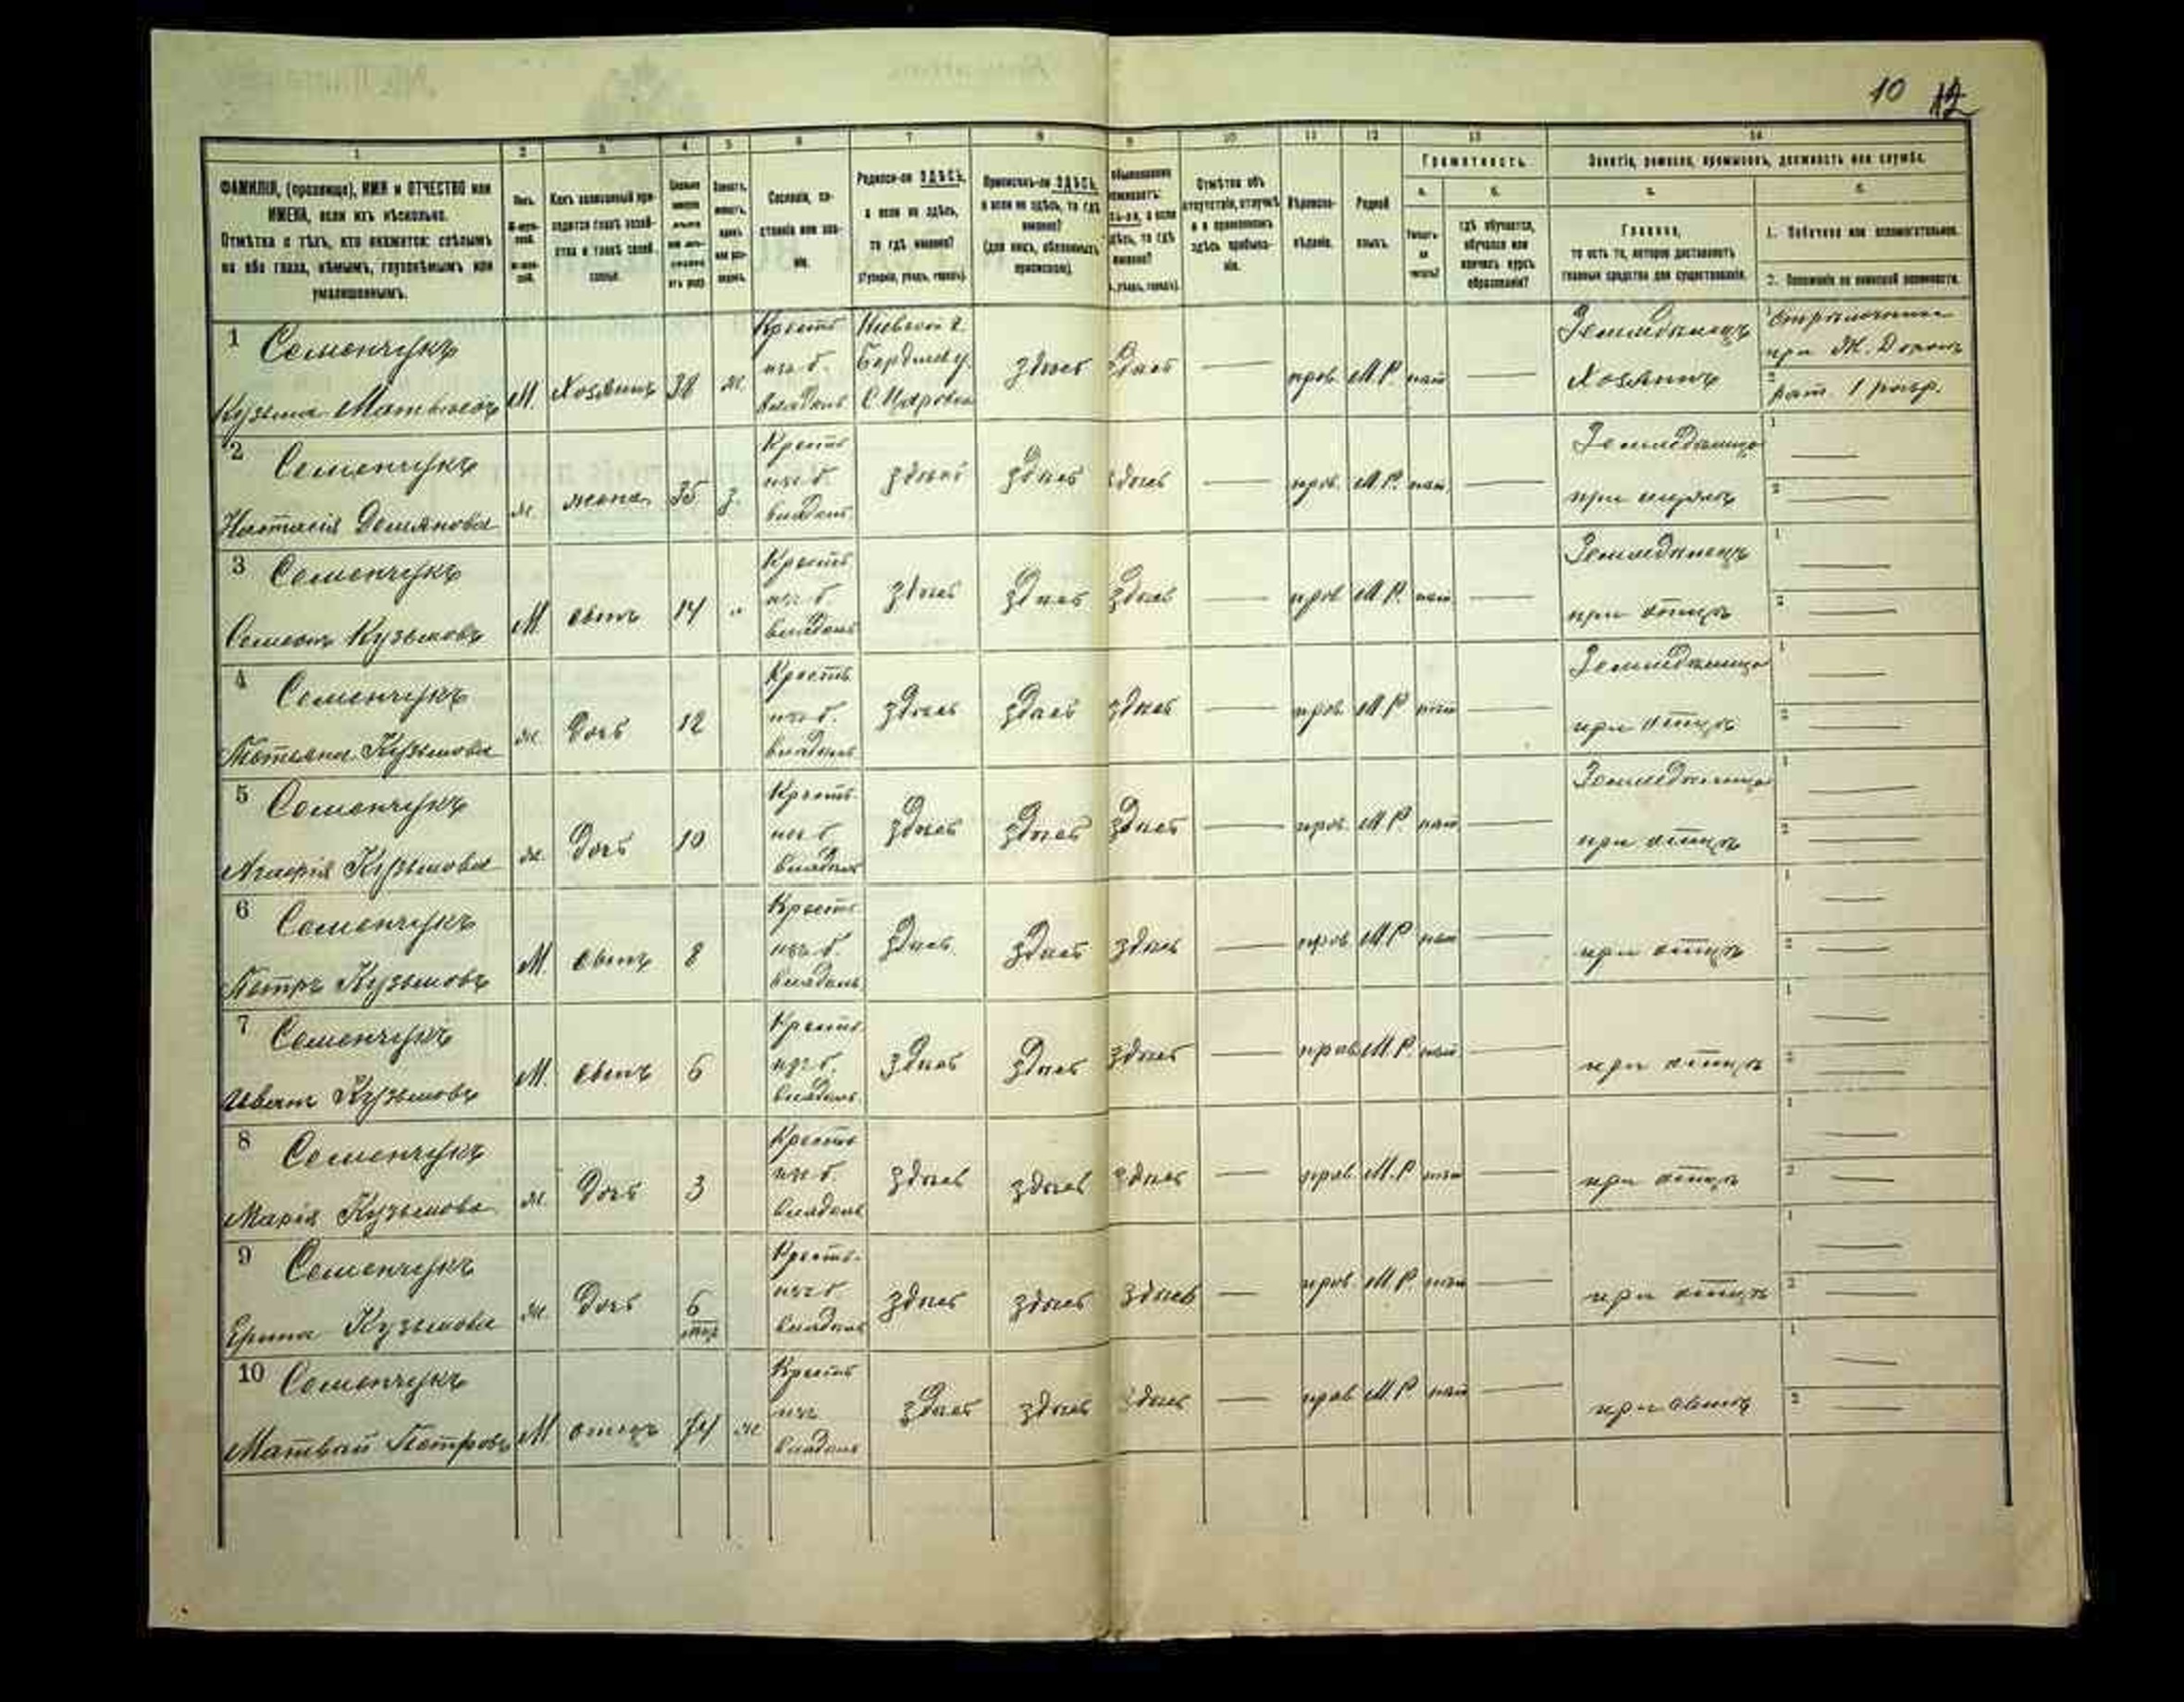 10 12
1 2 3 4 5 6 7 8 9 10 11 12 13 14
ФАМИЛІЯ, (прозвище), ИМЯ и ОТЧЕСТВО или
ИМЕНА, если ихъ нѣсколько.
Отмѣтка о тѣхъ, кто окажется: слѣпымъ
на оба глаза, нѣмымъ, глухонѣмымъ или
умалишеннымъ.
Сословіе, со-
стояніе или зва-
ніе.
Родился-ли ЗДѢСЬ,
а если не здѣсь,
то гдѣ именно?
(Губернія, уѣздъ, городъ).
Приписанъ-ли ЗДѢСЬ,
а если не здѣсь, то гдѣ
именно?
(для лицъ, обязанныхъ
припискою).
Отмѣтка объ
отсутствіи, отлучкѣ
и о временномъ
здѣсь пребыва-
ніи.
Вѣроиспо-
вѣданіе.
Родной
языкъ.
Грамотность.
а. б.
гдѣ обучается,
обучался или
кончилъ курсъ
образованія?
Занятіе, ремесло, промыселъ, должность или служба.
а. б.
Главное,
то есть то, которое доставляетъ
главныя средства для существованія.
1. Побочное или вспомогательное.
2. Положеніе по воинской повинности.
1 Семенчукъ
Кузьма Матвѣевъ М. Хозяинъ 38 ж. Кресть. изъ б. владѣл. Кіевской г. Бердичев у. здѣсь здѣсь — прав. М.Р. нѣт — Земледѣлецъ Хозяинъ
при Ж. Дорогѣ
2 рат. 1 разр.
2 Семенчукъ
Настасія Демянова ж. жена 35 з. Кресть изъ б. владѣл. здѣсь здѣсь здѣсь — прав. М.Р. нѣт — Земледѣлица при мужѣ 1 — 2 —
3 Семенчукъ
Семенъ Кузьмовъ М. сынъ 14 „ Кресть изъ б. владѣл. здѣсь здѣсь здѣсь — прав М.Р. нѣт — Земледѣлецъ при отцѣ 1 — 2 —
4 Семенчукъ
Татьяна Кузьмова ж. дочь 12 Крестьв. изъ б. владѣл. здѣсь здѣсь здѣсь — прав. М.Р. нѣт — Земледѣлица при отцѣ 1 — 2 —
5 Семенчукъ
Кузьмова ж. дочь 10 Крестьв. изъ б. владѣл. здѣсь здѣсь здѣсь — прав. М.Р. нѣт — Земледѣлица при отцѣ 1 — 2 —
6 Семенчукъ
Петръ Кузьмовъ М. сынъ 8 Крестьв. изъ б. владѣл. здѣсь здѣсь здѣсь — прав. М.Р. нѣт — при отцѣ 1 — 2 —
7 Семенчукъ
Иванъ Кузьмовъ М. сынъ 6 Крестьв. изъ б. владѣл. здѣсь здѣсь здѣсь — прав. М.Р. нѣт — при отцѣ 1 — 2 —
8 Семенчукъ
Марія Кузьмова ж. дочь 3 Крестьв изъ б. владѣл. здѣсь здѣсь здѣсь — прав. М.Р нѣт — при отцѣ 1 — 2 —
9 Семенчукъ
Ерина Кузьмова ж. дочь 6 Крестьв. изъ б. владѣл. здѣсь здѣсь здѣсь — прав. М.Р. нѣт — при отцѣ 1 — 2 —
10 Семенчукъ
Матвѣй Петровъ М отецъ 74 ж Крестьв изъ владѣл. здѣсь здѣсь здѣсь — прав М.Р нѣт — при сынѣ 1 — 2 —